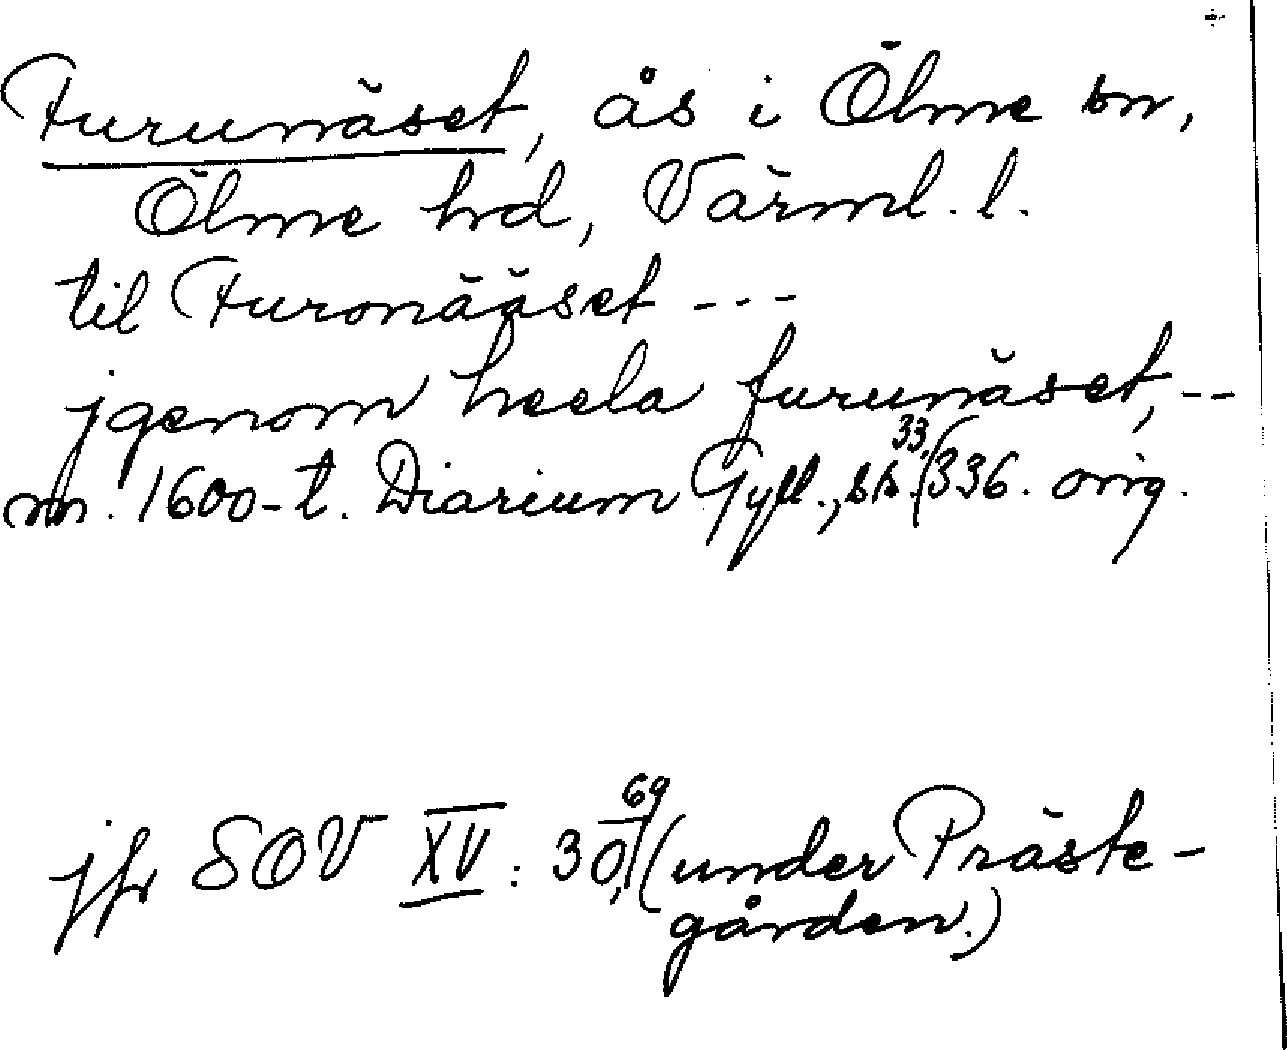 Furunäset, ås i Ölme sn,
Ölme hd, Värml. l.
til Furonääset ---
jgenom heela furunäset, --
m. 1600-t. Diarium Gyll., ss. 33, 336. orig.
jfr SOV XV: 30, 69 (under Präste-
gården.)